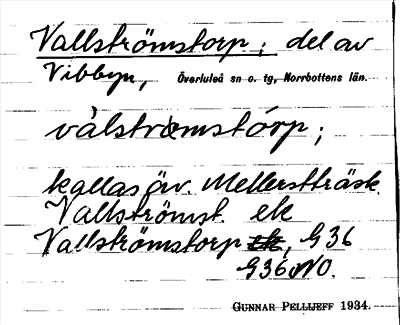 Vallströmstorp; del av
Vibbyn, Överluleå sn o. tg, Norrbottens län.
válstrœmstórp;
kallas äv. Mellerstträsk.
Vallströmst. ek
Vallströmstorp ek, G 36
G36NO.
GUNNAR PELLIJEFF 1934.